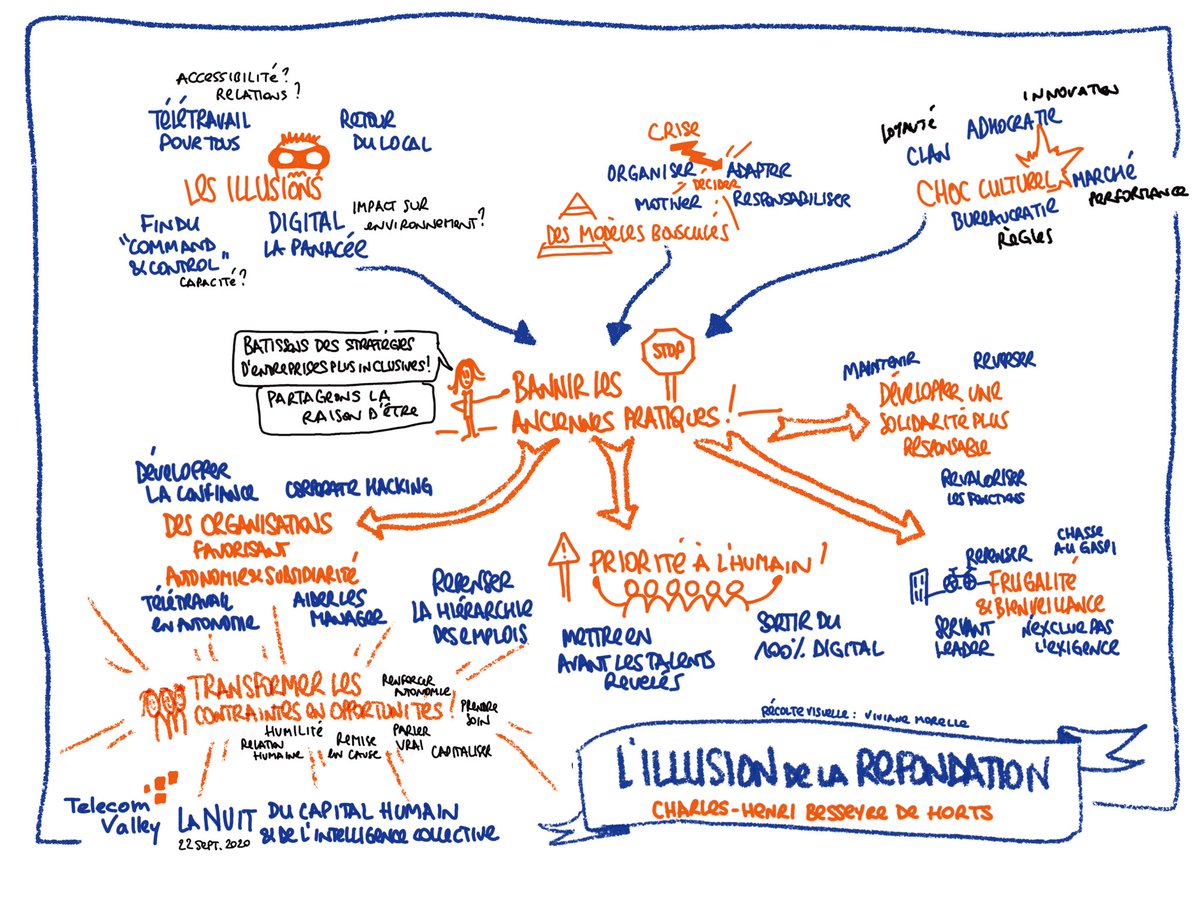 ACCESSIBILITÉ?
RELATIONS?
TÉLÉTRAVAIL
POUR TOUS
RETOUR
DU LOCAL
LES ILLUSIONS
FIN DU
"COMMAND
& CONTROL"
CAPACITÉ?
DIGITAL
LA PANACÉE
IMPACT SUR
ENVIRONNEMENT?
CRISE
ORGANISER
ADAPTER
DÉCIDER
MOTIVER
RESPONSABILISER
DES MODÈLES BOUSCULÉS
INNOVATION
LOYAUTÉ
ADHOCRATIE
CLAN
CHOC CULTUREL
MARCHÉ
PERFORMANCE
BUREAUCRATIE
RÈGLES
BATISSONS DES STRATÉGIES
D'ENTREPRISES PLUS INCLUSIVES!
PARTAGEONS LA
RAISON D'ÊTRE
STOP
BANNIR LES
ANCIENNES PRATIQUES!
MAINTENIR
REVERSER
DÉVELOPPER UNE
SOLIDARITÉ PLUS
RESPONSABLE
REVALORISER
LES FONCTIONS
DÉVELOPPER
LA CONFIANCE
CORPORATE HACKING
DES ORGANISATIONS
FAVORISANT
AUTONOMIE & SUBSIDIARITÉ
TÉLÉTRAVAIL
EN AUTONOMIE
AIDER LES
MANAGER
REPENSER
LA HIÉRARCHIE
DES EMPLOIS
PRIORITÉ À L'HUMAIN!
METTRE EN
AVANT LES TALENTS
REVELÉS
SORTIR DU
100% DIGITAL
REPENSER
CHASSE
AU GASPI
FRUGALITÉ
& BIENVEILLANCE
SERVANT
LEADER
N'EXCLUE PAS
L'EXIGENCE
TRANSFORMER LES
CONTRAINTES EN OPPORTUNITÉS!
RENFORCER
AUTONOMIE
PRENDRE
SOIN
HUMILITÉ
RELATION
HUMAINE
REMISE
EN CAUSE
PARLER
VRAI
CAPITALISER
RÉCOLTE VISUELLE: VIVIANE MORELLE
L'ILLUSION DE LA REFONDATION
CHARLES-HENRI BESSEYRE DE HORTS
Telecom
Valley
LA NUIT DU CAPITAL HUMAIN
& DE L'INTELLIGENCE COLLECTIVE
22 SEPT. 2020